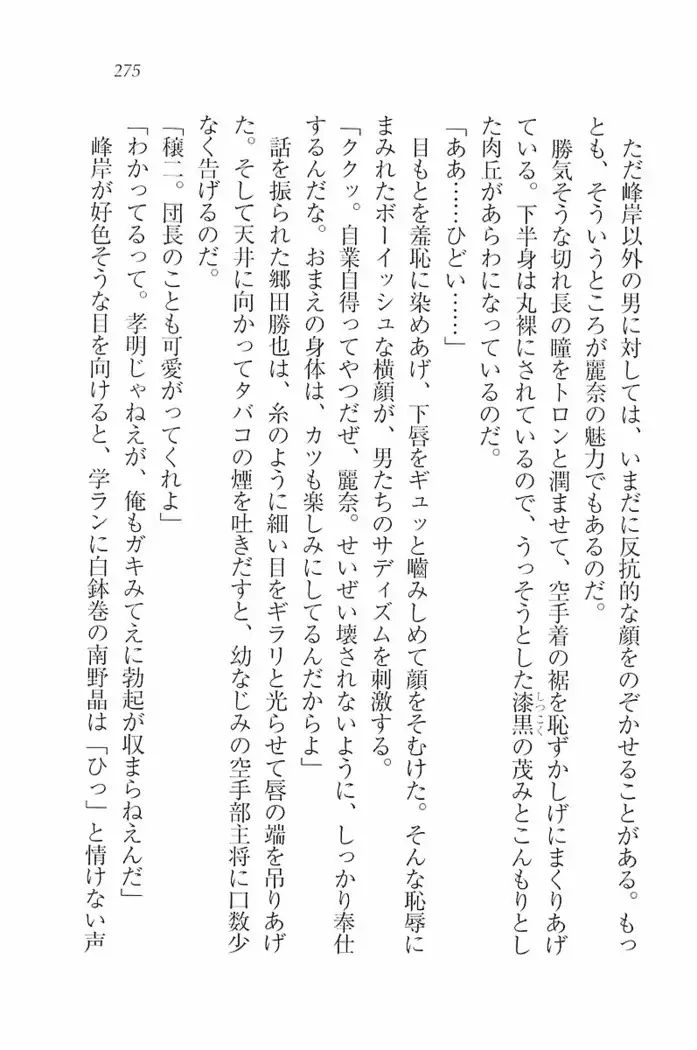 275
ただ峰岸以外の男に対しては、いまだに反抗的な顔をのぞかせることがある。もっ
とも、そういうところが麗奈の魅力でもあるのだ。
勝気そうな切れ長の瞳をトロンと潤ませて、空手着の裾を恥ずかしげにまくりあげ
ている。下半身は丸裸にされているので、うっそうとした漆黒の茂みとこんもりとし
た肉丘があらわになっているのだ。
「ああ……ひどい……」
目もとを羞恥に染めあげ、下唇をギュッと嚙みしめて顔をそむけた。そんな恥辱に
まみれたボーイッシュな横顔が、男たちのサディズムを刺激する。
「ククッ。自業自得ってやつだぜ、麗奈。せいぜい壊されないように、しっかり奉仕
するんだな。おまえの身体は、カツも楽しみにしてるんだからよ」
話を振られた郷田勝也は、糸のように細い目をギラリと光らせて唇の端を吊りあげ
た。そして天井に向かってタバコの煙を吐きだすと、幼なじみの空手部主将に口数少
なく告げるのだ。
「穣二。団長のことも可愛がってくれよ」
「わかってるって。孝明じゃねえが、俺もガキみてえに勃起が収まらねえんだ」
峰岸が好色そうな目を向けると、学ランに白鉢巻の南野晶は「ひっ」と情けない声